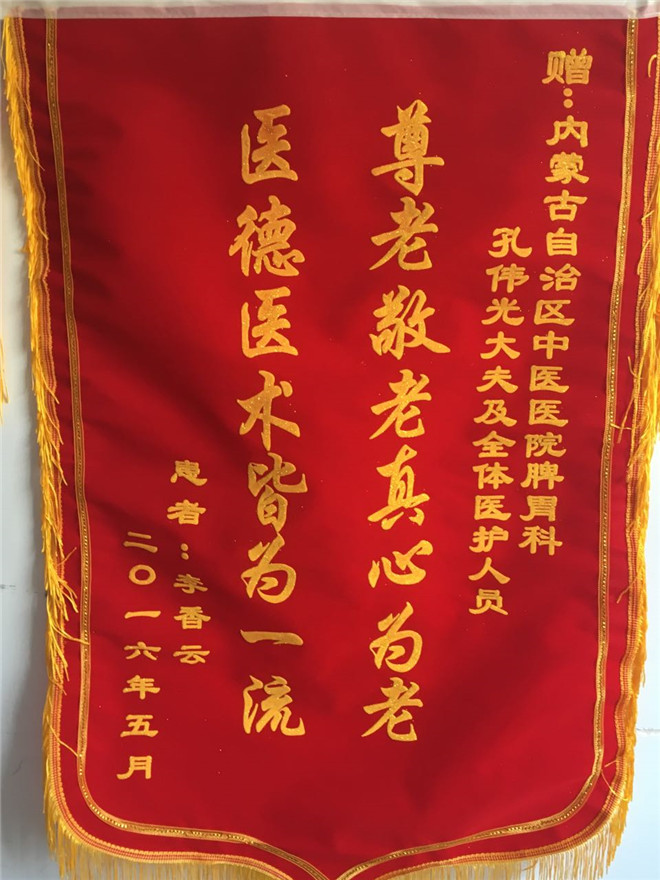 赠：内蒙古自治区中医医院脾胃科
孔伟光大夫及全体医护人员
尊老敬老真心为老
医德医术皆为一流
患者：李香云
二〇一六年五月